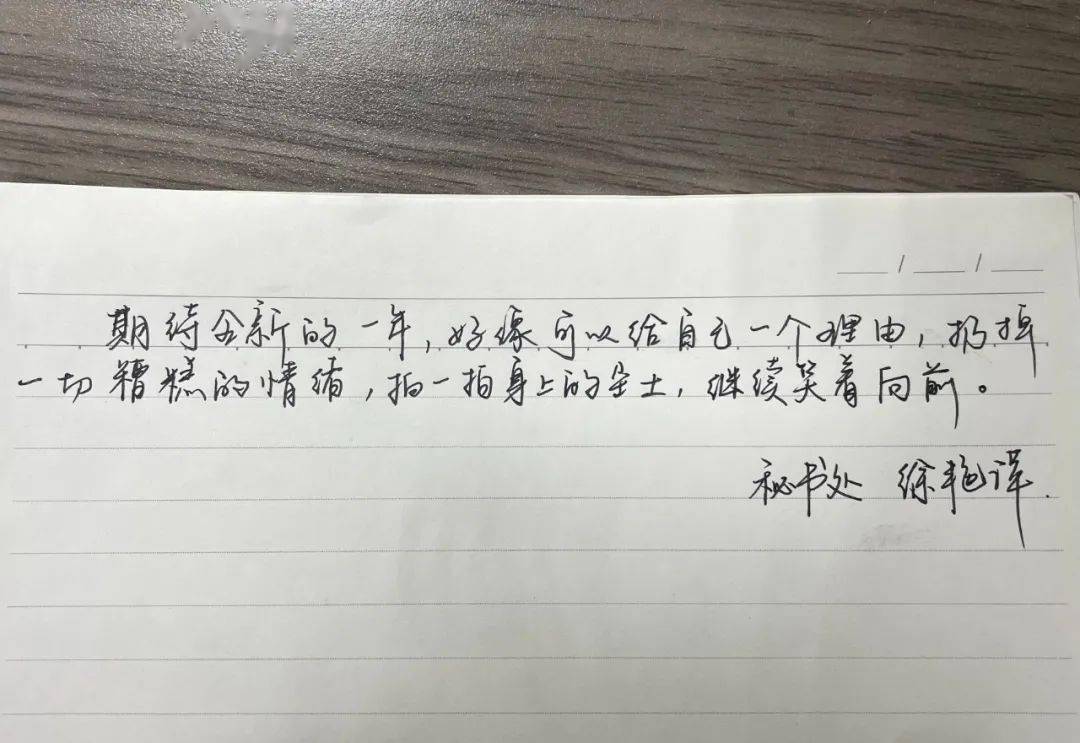 期待全新的一年,好像可以给自己一个理由,扔掉
一切糟糕的情绪,拍一拍身上的尘土,继续笑着向前。
秘书处 徐艳译